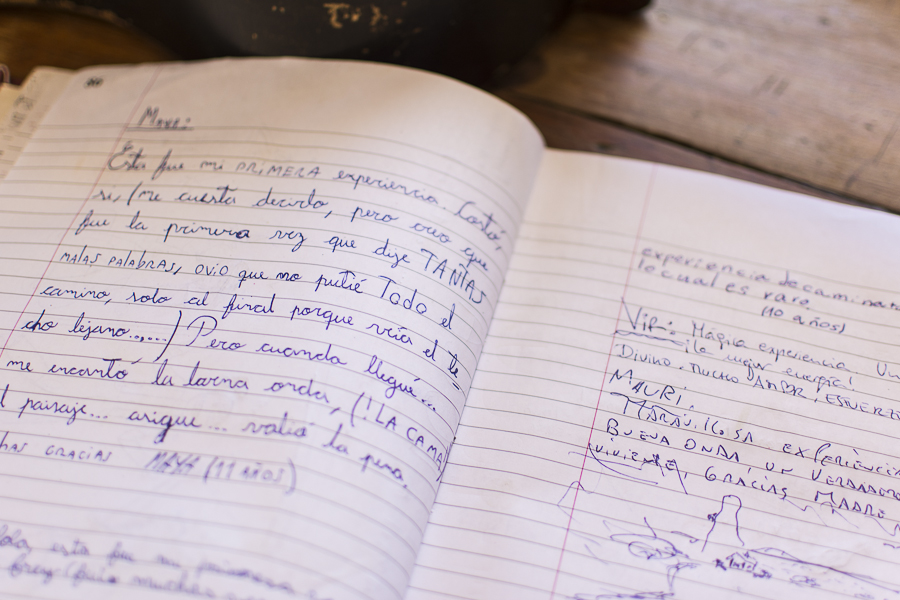 MAYA:
Esta fue mi PRIMERA experiencia. Costó,
si, (me cuesta decirlo, pero creo que
fue la primera vez que dije TANTAS
MALAS PALABRAS, OVIO que no putié Todo el
camino, solo al final porque veía el te=
cho lejano......) Pero cuando llegué...
me encantó la buena onda, (! LA CAMA)
paisaje... asique... valió la pena.
GRACIAS MAYA (11 AÑOS)
esta fue mi primera
experiencia de caminat
lo cual es raro
(10 años)
VIR: Mágica experiencia. Un
¡la mejor energía!
Divino. Mucho AMOR, ESFUERZO
MAURI.
MARAVILLOSA EXPERIENCIA
BUENA ONDA, UN VERDADERO
VIVIENTE, GRACIAS MADRE